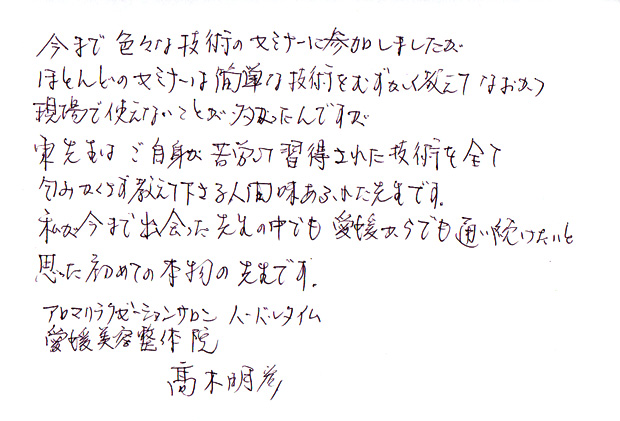 今まで色々な技術のセミナーに参加しましたが
ほとんどのセミナーは簡単な技術をむずかしく教えてなおかつ
現場で使えないことが多かったんですが
東先生はご自身が苦労して習得された技術を全て
包みかくさず教えて下さる人間味あふれた先生です。
私が今まで出会った先生の中でも愛媛からでも通い続けたいと
思った初めての本物の先生です。
アロマリラクゼーションサロン
愛媛美容整体院
高木明彦